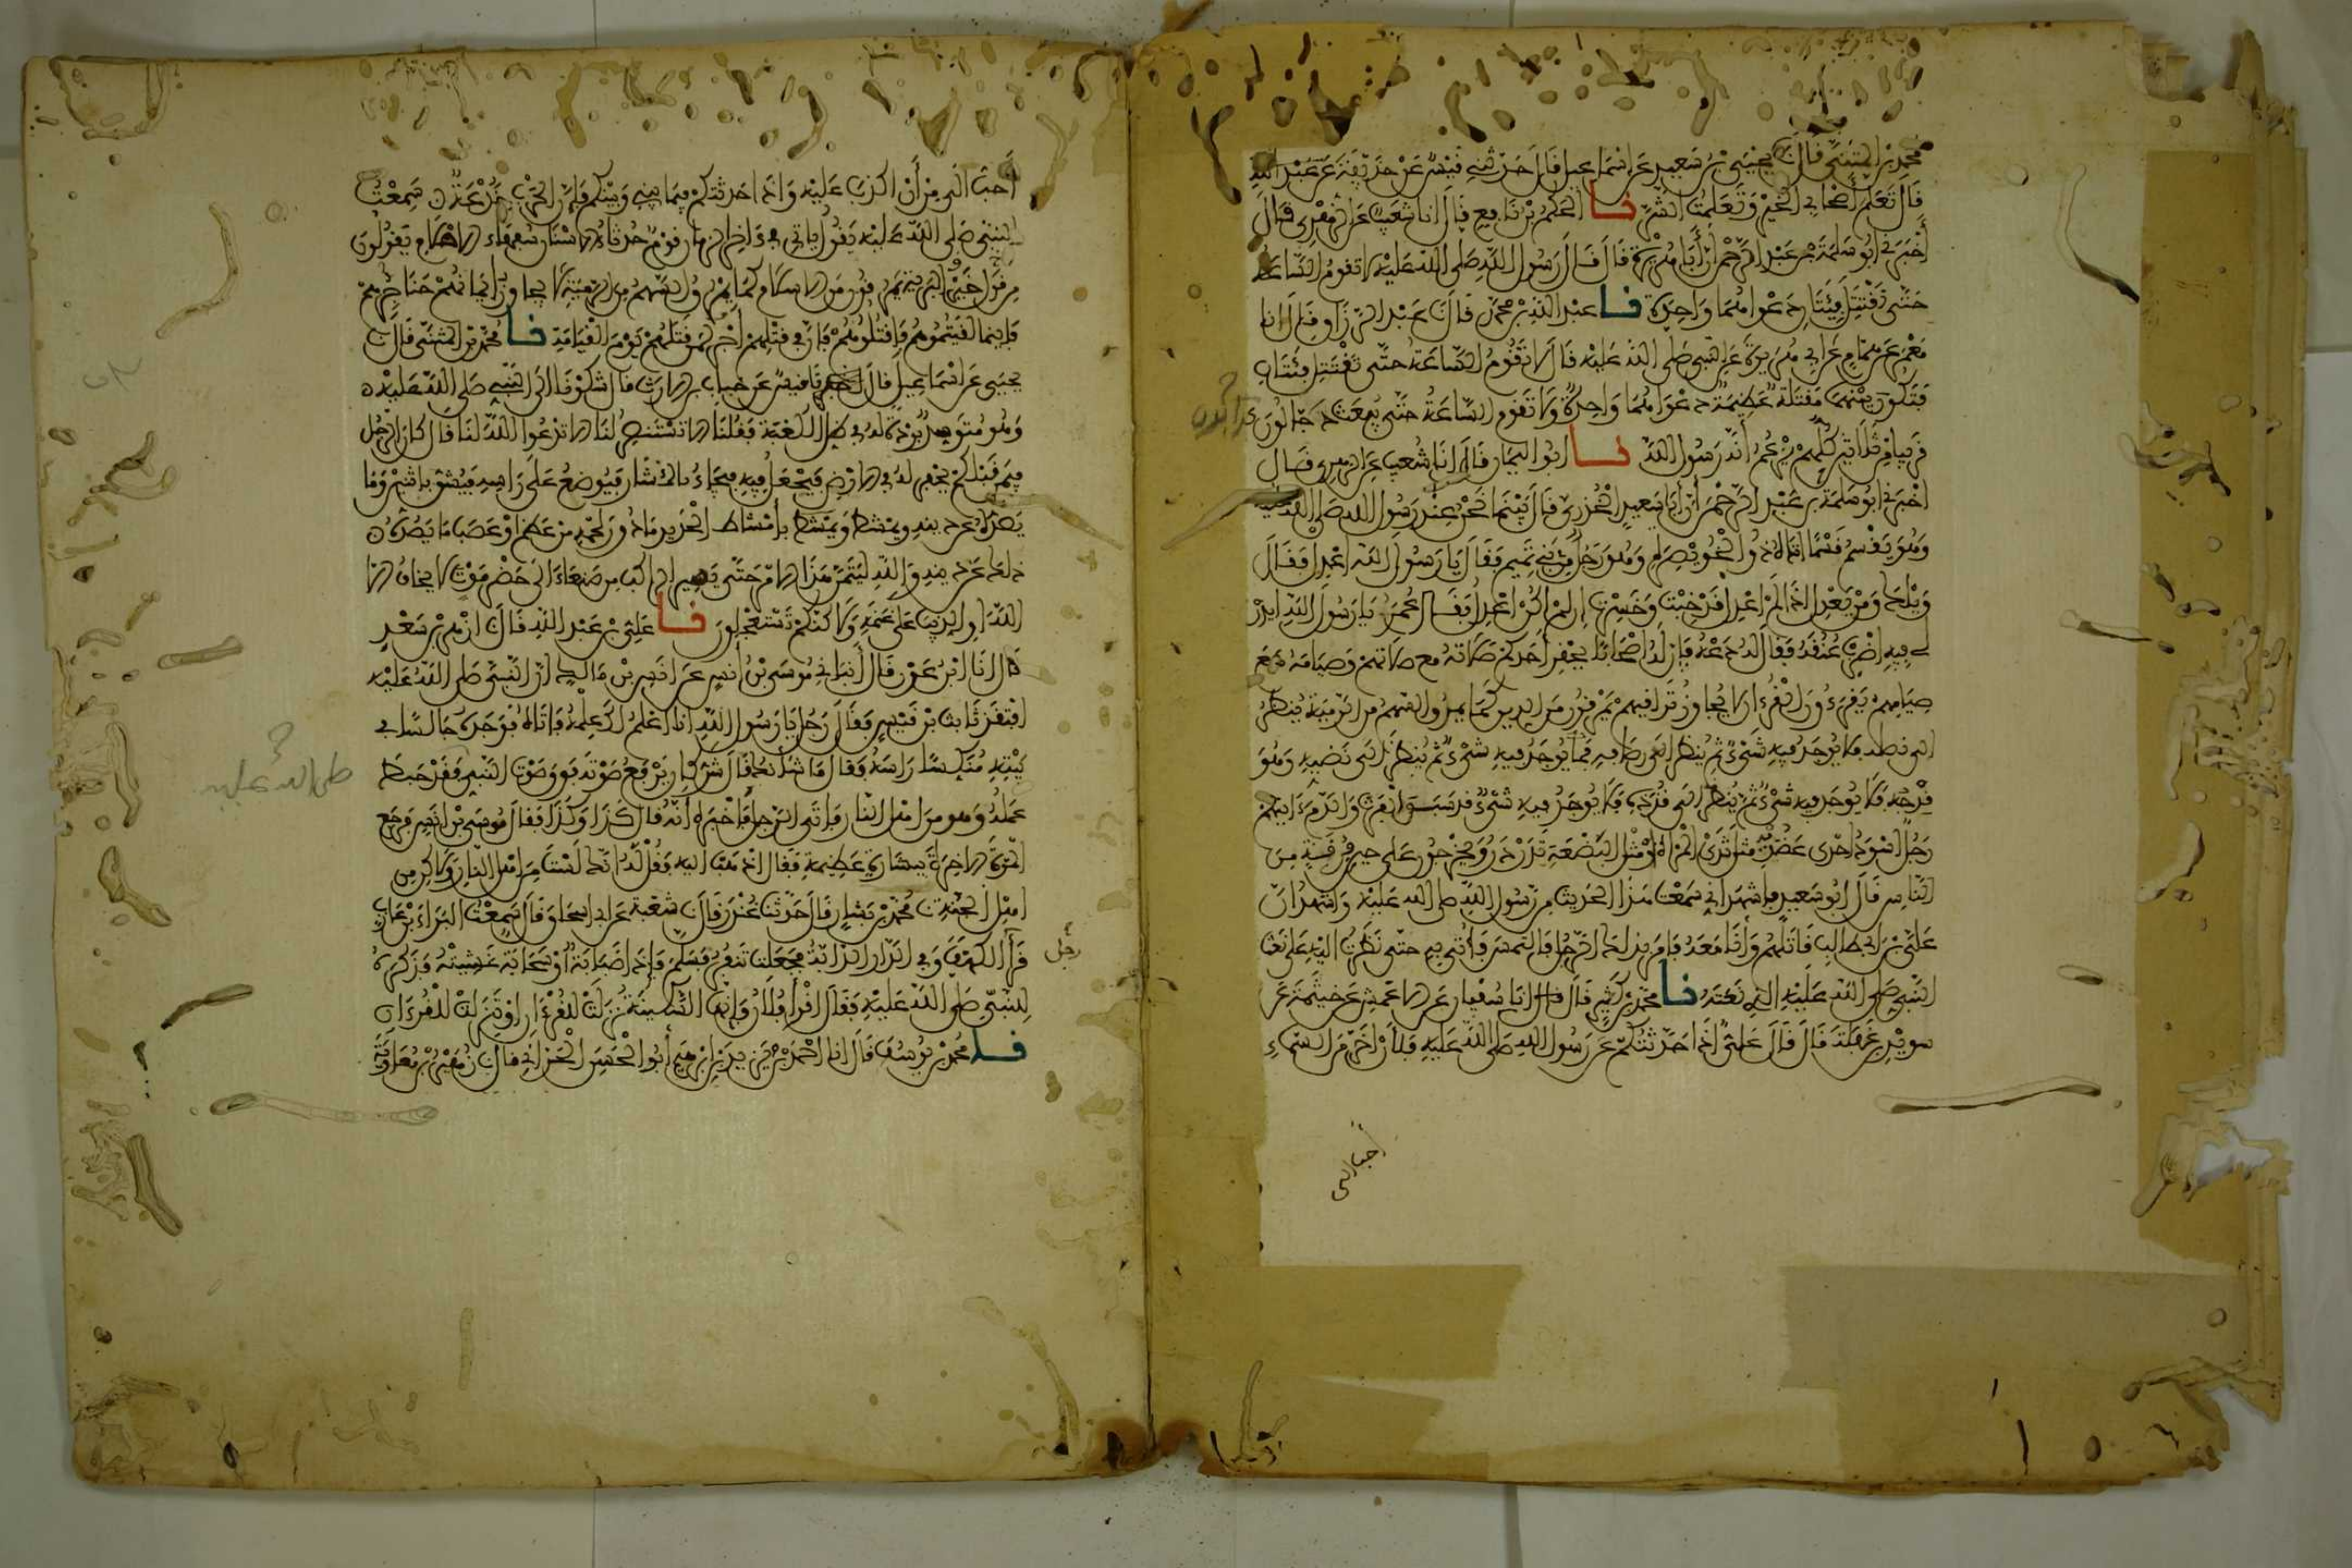 محمد بن المثنى قال نا يحيى بن سعيد عن اسماعيل قال حدثني قيس عن حذيفة عن عبد الله
قال تعلم اصحابي الخير وتعلمت الشر نا الحكم بن نافع قال انا شعيب عن الزهري قال
أخبرني ابو سلمة بن عبد الرحمن أن أبا هريرة قال قال رسول الله صلى الله عليه لا تقوم الساعة
حتى تقتتل فئتان دعواهما واحدة نا عبد الله بن محمد قال نا عبد الرزاق قال انا
معمر عن همام عن ابي هريرة عن النبي صلى الله عليه قال لا تقوم الساعة حتى تقتتل فئتان
فتكون بينهما مقتلة عظيمة دعواهما واحدة ولا تقوم الساعة حتى يبعث دجالون كذابون
قريبا من ثلاثين كلهم يزعم أنه رسول الله نا ابو اليمان قال انا شعيب عن الزهري قال
اخبرني ابو سلمة بن عبد الرحمن أن أبا سعيد الخدري قال بينما نحن عند رسول الله صلى الله عليه
وهو يقسم قسما اتاه ذو الخويصرة وهو رجل من بني تميم فقال يا رسول الله اعدل فقال
ويلك ومن يعدل اذا لم اعدل قد خبت وخسرت ان لم اكن اعدل فقال عمر يا رسول الله ايذن
لي فيه اضرب عنقه فقال له دعه فإن له اصحابا يحقر أحدكم صلاته مع صلاتهم وصيامه مع
صيامهم يقرءون القرءان لا يجاوز تراقيهم يمرقون من الدين كما يمرق السهم من الرمية ينظر
الى نصله فلا يوجد فيه شيء ثم ينظر الى رصافه فما يوجد فيه شيء ثم ينظر الى نضيه وهو
قدحه فلا يوجد فيه شيء ثم ينظر الى قذذه فلا يوجد فيه شيء قد سبق الفرث والدم ءايتهم
رجل اسود احدى عضديه مثل ثدي المرأة او مثل البضعة تدردر ويخرجون على حين فرقة من
الناس قال ابو سعيد فاشهد اني سمعت هذا الحديث من رسول الله صلى الله عليه واشهد ان
علي بن ابي طالب قاتلهم وأنا معه فامر بذلك الرجل فالتمس فأتي به حتى نظرت اليه على نعت
النبي صلى الله عليه الذي نعته نا محمد بن كثير قال انا سفيان عن الاعمش عن خيثمة عن
سويد بن غفلة قال قال علي اذا حدثتكم عن رسول الله صلى الله عليه فلأن أخر من السماء
اخبارالى
أحب الي من أن اكذب عليه واذا حدثتكم فيما بيني وبينكم فإن الحرب خدعة سمعت
النبي صلى الله عليه يقول ياتي في ءاخر الزمان قوم حدثاء الاسنان سفهاء الاحلام يقولون
من قول خير البرية يمرقون من الاسلام كما يمرق السهم من الرمية لا يجاوز إيمانهم حناجرهم
فاينما لقيتموهم فاقتلوهم فإن في قتلهم أجر لمن قتلهم يوم القيامة نا محمد بن المثنى قال نا
يحيى عن اسماعيل قال نا قيس عن خباب بن الارت قال شكونا الى النبي صلى الله عليه
وهو متوسد بردة له في ظل الكعبة فقلنا الا تستنصر لنا الا تدعوا الله لنا قال كان الرجل
فيمن قبلكم يحفر له في الارض فيجعل فيه فيجاء بالمنشار فيوضع على راسه فيشق باثنين وما
يصده عن دينه ويمشط بأمشاط الحديد مادون لحمه من عظم او عصب ما يصده
ذلك عن دينه والله ليتمن هذا الامر حتى يسير الراكب من صنعاء الى حضرموت لا يخاف الا
الله او الذيب على غنمه ولاكنكم تستعجلون نا علي بن عبد الله قال نا ازهر بن سعد
قال انا ابن عون قال أنباني موسى بن أنس عن انس بن مالك ان النبي صلى الله عليه
افتقد ثابت بن قيس فقال رجل يا رسول الله انا اعلم لك علمه فاتاه فوجده جالسا في
بيته منكسا راسه فقال ما شأنك قال شر كان يرفع صوته فوق صوت النبي فقد حبط
صلى الله عليه
عمله وهو من اهل النار فاتى الرجل فأخبره أنه قال كذا وكذا فقال موسى بن انس فرجع
المرة الاخرة ببشارة عظيمة فقال اذهب اليه فقل له انك لست من اهل النار ولاكن من
اهل الجنة نا محمد بن بشار قال حدثنا غندر قال نا شعبة عن ابي اسحاق قال سمعت البراء بن عازب
قرأ الكهف وفي الدار الدابة فجعلت تنفر فسلم فإذا ضبابة أو سحابة غشيته فذكره
رجل
للنبي صلى الله عليه فقال اقرأ فلان فإنها السكينة نزلت للقرءان او تنزلت للقرءان
نا محمد بن يوسف قال نا احمد بن يزيد بن ابرهيم أبو الحسن الحراني قال نا زهير بن معاوية